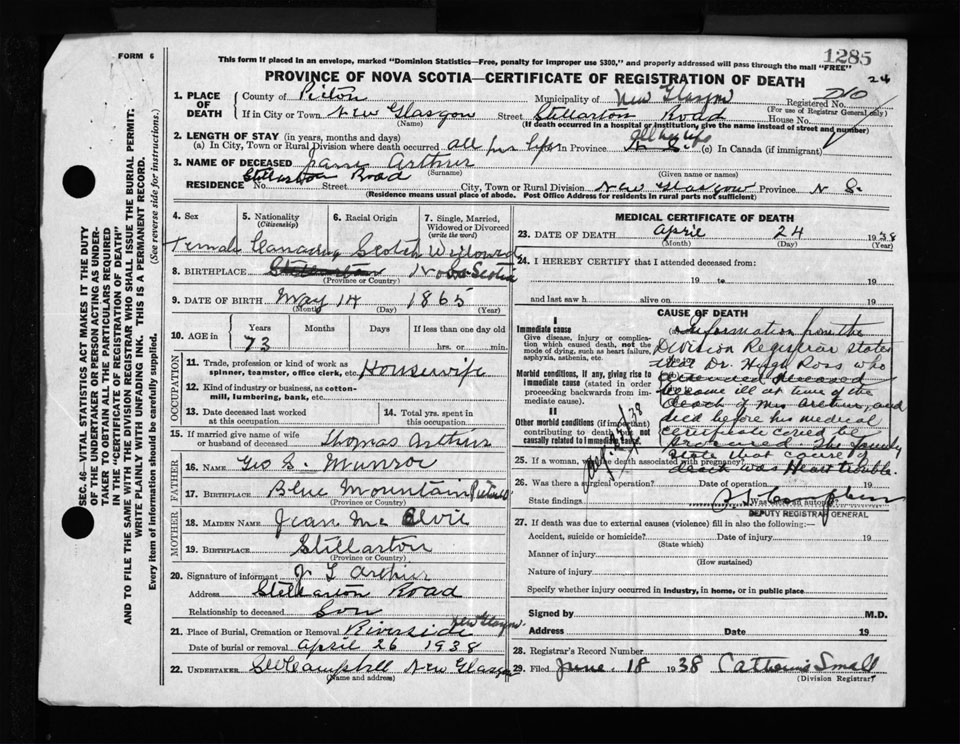 FORM 6
1285
This form if placed in an envelope, marked "Dominion Statistics—Free, penalty for improper use $300," and properly addressed will pass through the mail "FREE"
24
PROVINCE OF NOVA SCOTIA—CERTIFICATE OF REGISTRATION OF DEATH
1. PLACE OF DEATH
County of Pictou Municipality of New Glasgow Registered No.
(For use of Registrar General only)
If in City or Town New Glasgow Street Stellarton Road House No.
(Name) (If death occurred in a hospital or institution, give the name instead of street and number)
2. LENGTH OF STAY (in years, months and days)
(a) In City, Town or Rural Division where death occurred all her life In Province All her life N. S. (c) In Canada (if immigrant)
3. NAME OF DECEASED Jane Arthur
(Surname) (Given name or names)
Stellarton Road
RESIDENCE No. Street City, Town or Rural Division New Glasgow Province N S.
(Residence means usual place of abode. Post Office Address for residents in rural parts not sufficient)
4. Sex 5. Nationality (Citizenship) 6. Racial Origin 7. Single, Married, Widowed or Divorced (write the word)
Female Canadian Scotch Widowed
8. BIRTHPLACE Stellarton Nova Scotia
(Province or Country)
9. DATE OF BIRTH May 14 1865
(Month) (Day) (Year)
10. AGE in Years Months Days If less than one day old
73 hrs. or min.
OCCUPATION
11. Trade, profession or kind of work as spinner, teamster, office clerk, etc. Housewife
12. Kind of industry or business, as cotton-mill, lumbering, bank, etc.
13. Date deceased last worked at this occupation 14. Total yrs. spent in this occupation
15. If married give name of wife or husband of deceased Thomas Arthur
FATHER
16. NAME Geo G. Munroe
17. BIRTHPLACE Blue Mountain Pictou
(Province or Country)
MOTHER
18. MAIDEN NAME Jean Mc
19. BIRTHPLACE Stillarton
(Province or Country)
20. Signature of informant J L Arthur
Address Stellarton Road
Relationship to deceased Son
21. Place of Burial, Cremation or Removal Riverside New Glasgow.
Date of burial or removal April 26 1938
22. UNDERTAKER Campbell New Glasgow
(Name and address)
MEDICAL CERTIFICATE OF DEATH
23. DATE OF DEATH April 24 1938
(Month) (Day) (Year)
24. I HEREBY CERTIFY that I attended deceased from:
19 to 19
and last saw h alive on 19
CAUSE OF DEATH
I
Immediate cause
Give disease, injury or complication which caused death, not the mode of dying, such as heart failure, asphyxia, asthenia, etc.
Morbid conditions, if any, giving rise to immediate cause (stated in order proceeding backwards from immediate cause).
II
Other morbid conditions (if important) contributing to death but not causally related to immediate cause.
(a)
Information from the
Division Registrar states
that Dr. Hugh Ross who
attended deceased
became ill at time of the
death of Mrs Arthur, and
died before his medical
certificate could be
procured. The family
state that cause of
death was Heart trouble.
25. If a woman, was the death associated with pregnancy?
26. Was there a surgical operation? Date of operation 19
State findings Was there an autopsy?
DEPUTY REGISTRAR GENERAL
27. If death was due to external causes (violence) fill in also the following:—
Accident, suicide or homicide? Date of injury 19
(State which)
Manner of injury
(How sustained)
Nature of injury
Specify whether injury occurred in industry, in home, or in public place
Signed by M.D.
Address Date 19
28. Registrar's Record Number
29. Filed June 18 1938 Catherine Small
(Division Registrar)
SEC. 46—VITAL STATISTICS ACT MAKES IT THE DUTY
OF THE UNDERTAKER OR PERSON ACTING AS UNDER-
TAKER TO OBTAIN ALL THE PARTICULARS REQUIRED
IN THE "CERTIFICATE OF REGISTRATION OF DEATH"
AND TO FILE THE SAME WITH THE DIVISION REGISTRAR WHO SHALL ISSUE THE BURIAL PERMIT.
WRITE PLAINLY WITH UNFADING INK. THIS IS A PERMANENT RECORD.
Every item of information should be carefully supplied. (See reverse side for instructions.)